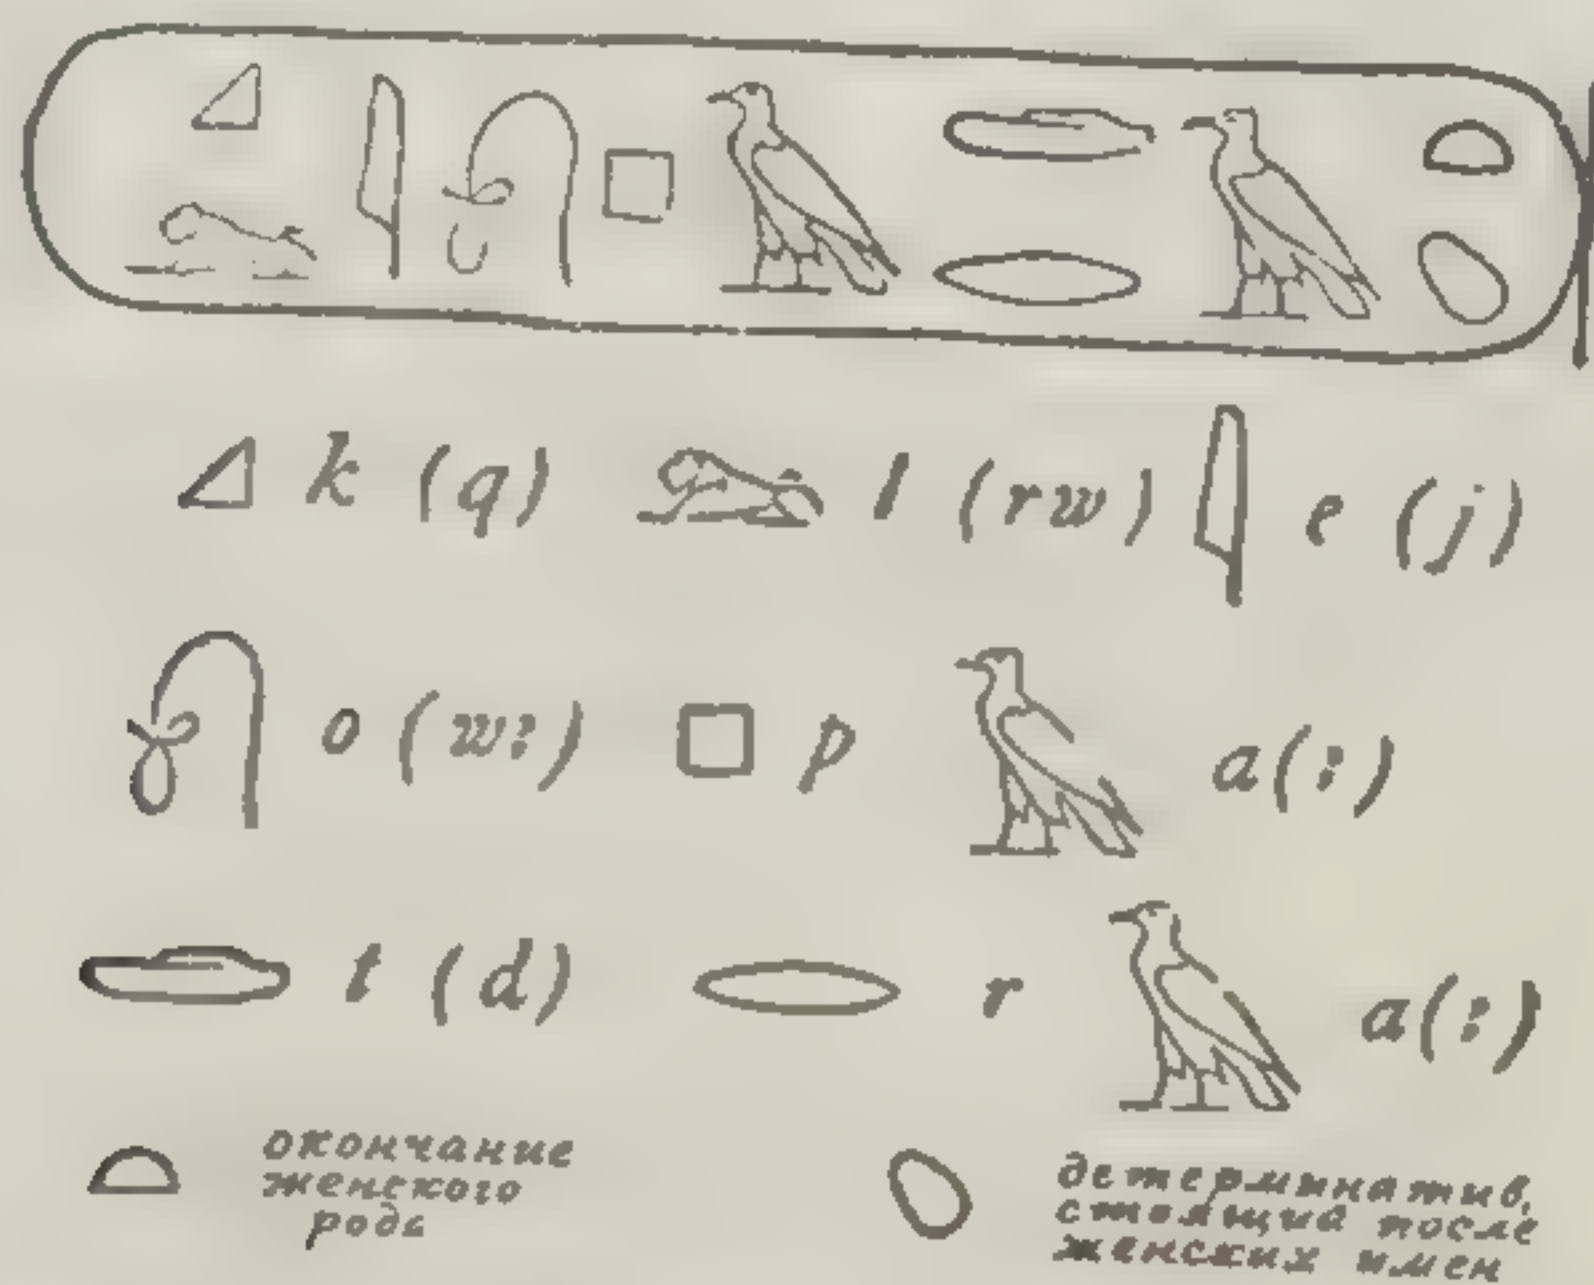 k (q) l (rw) e (j)
o (wꜣ) p a(ꜣ)
t (d) r a(ꜣ)
окончание
женского
рода
детерминатив,
стоящий после
женских имен